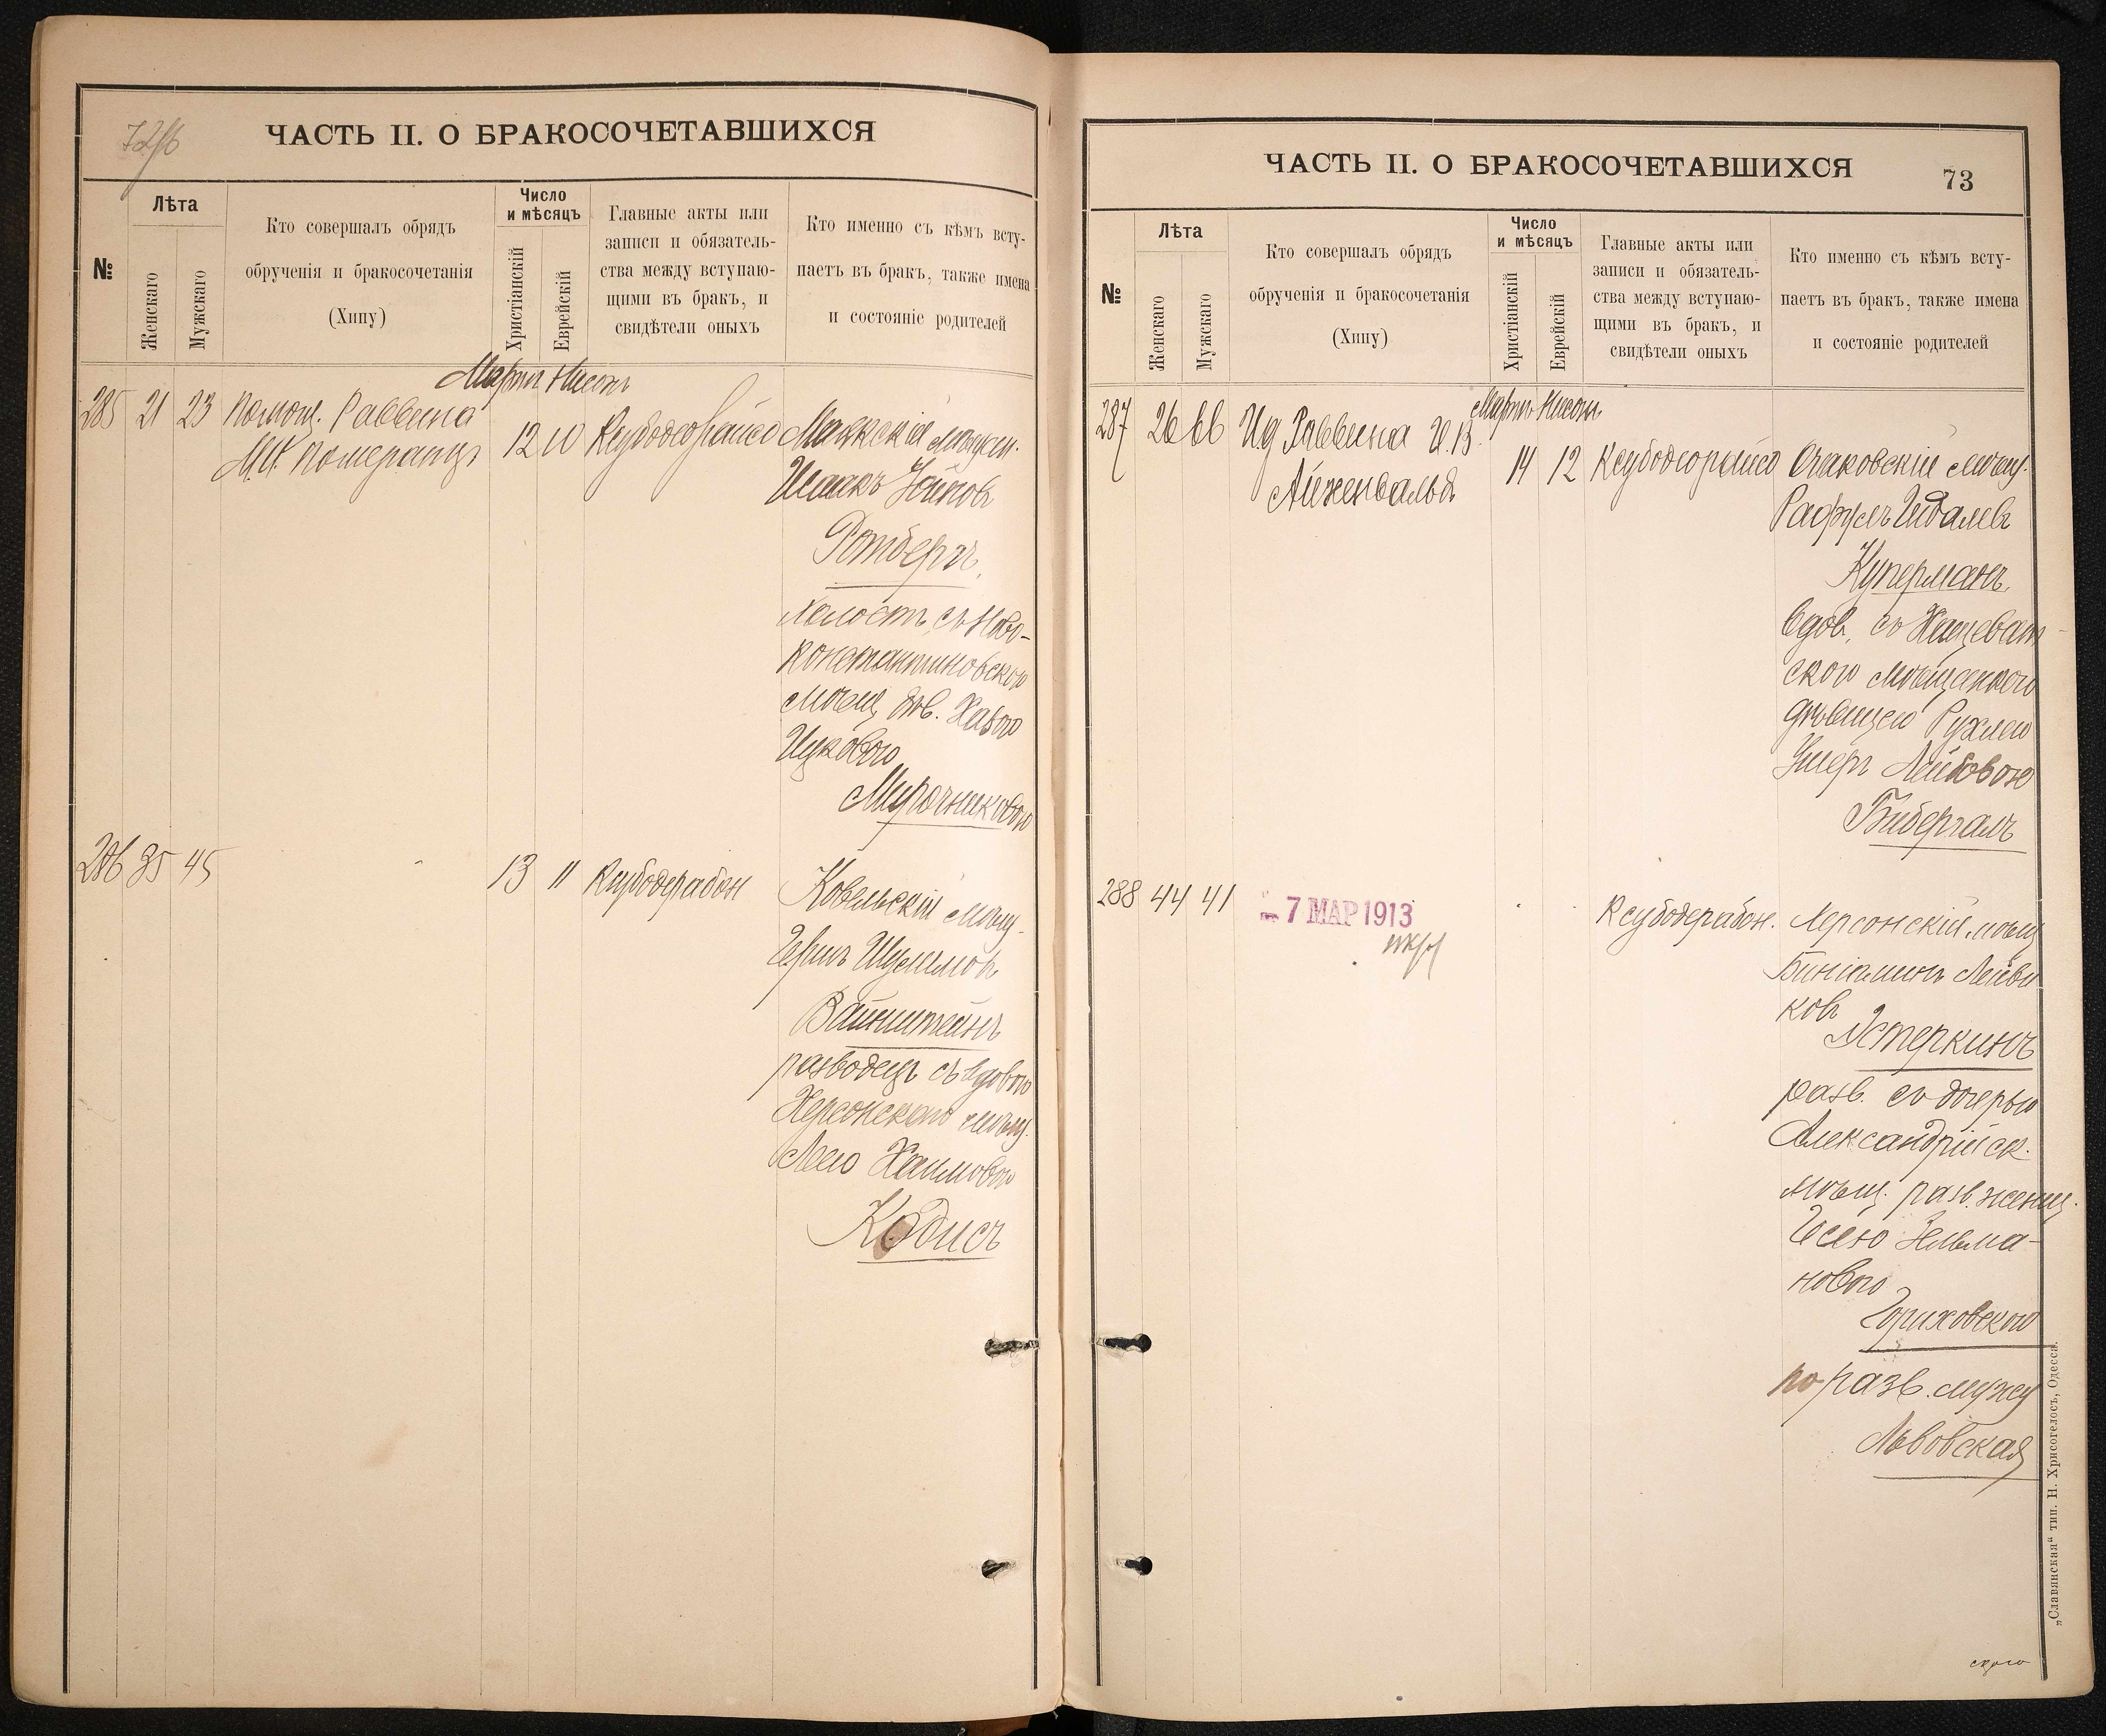 ЧАСТЬ II. О БРАКОСОЧЕТАВШИХСЯ
№
Лѣта
Женскаго
Мужскаго
Кто совершалъ обрядъ
обрученія и бракосочетанія
(Хипу)
Число
и мѣсяцъ
Христіанскій
Еврейскій
Главные акты или
записи и обязатель-
ства между вступаю-
щими въ бракъ, и
свидѣтели оныхъ
Кто именно съ кѣмъ всту-
паетъ въ бракъ, также имена
и состояніе родителей
Мартъ Нисонъ
285 21 23 Помощ. Раввина
М. Померанцъ
12 10
Исаакъ
Ротбергъ
холостъ съ Ново-
константиновскою
мѣщ. дѣв. Хавою
Ицковою
Мирочниковою
286 35 45
13 11 Ксубодерабон
Ковельскій мѣщ.
Гершъ Шулимов
Вайнштейнъ
разводецъ съ вдовою
Херсонскаго мѣщ.
Леею Хаимовою
Кодисъ
ЧАСТЬ II. О БРАКОСОЧЕТАВШИХСЯ
73
№
Лѣта
Женскаго
Мужскаго
Кто совершалъ обрядъ
обрученія и бракосочетанія
(Хипу)
Число
и мѣсяцъ
Христіанскій
Еврейскій
Главные акты или
записи и обязатель-
ства между вступаю-
щими въ бракъ, и
свидѣтели оныхъ
Кто именно съ кѣмъ всту-
паетъ въ бракъ, также имена
и состояніе родителей
Мартъ Нисонъ
287 26 66 И.д. Раввина И.В.
Айзенвальдъ
14 12 Ксубодеорайсо
Очаковскій мѣщ.
Рафулъ Идалев
Куперманъ
вдов. съ Хащеват-
скою мѣщанкою
дѣвицею Рухлею
Умеръ Лейбовою
Бибергалъ
288 44 41
7 МАР 1913
Ксубодерабон.
Херсонскій мѣщ
Биніаминъ Лейви
ковъ
Эстеркинъ
разв. съ дочерью
Александрійск.
мѣщ. разв. женщ.
Исею Зельма-
новою
Гориховскою
по разв. мужу
Львовская
„Славянская“ тип. Н. Хрисогелосъ, Одесса.